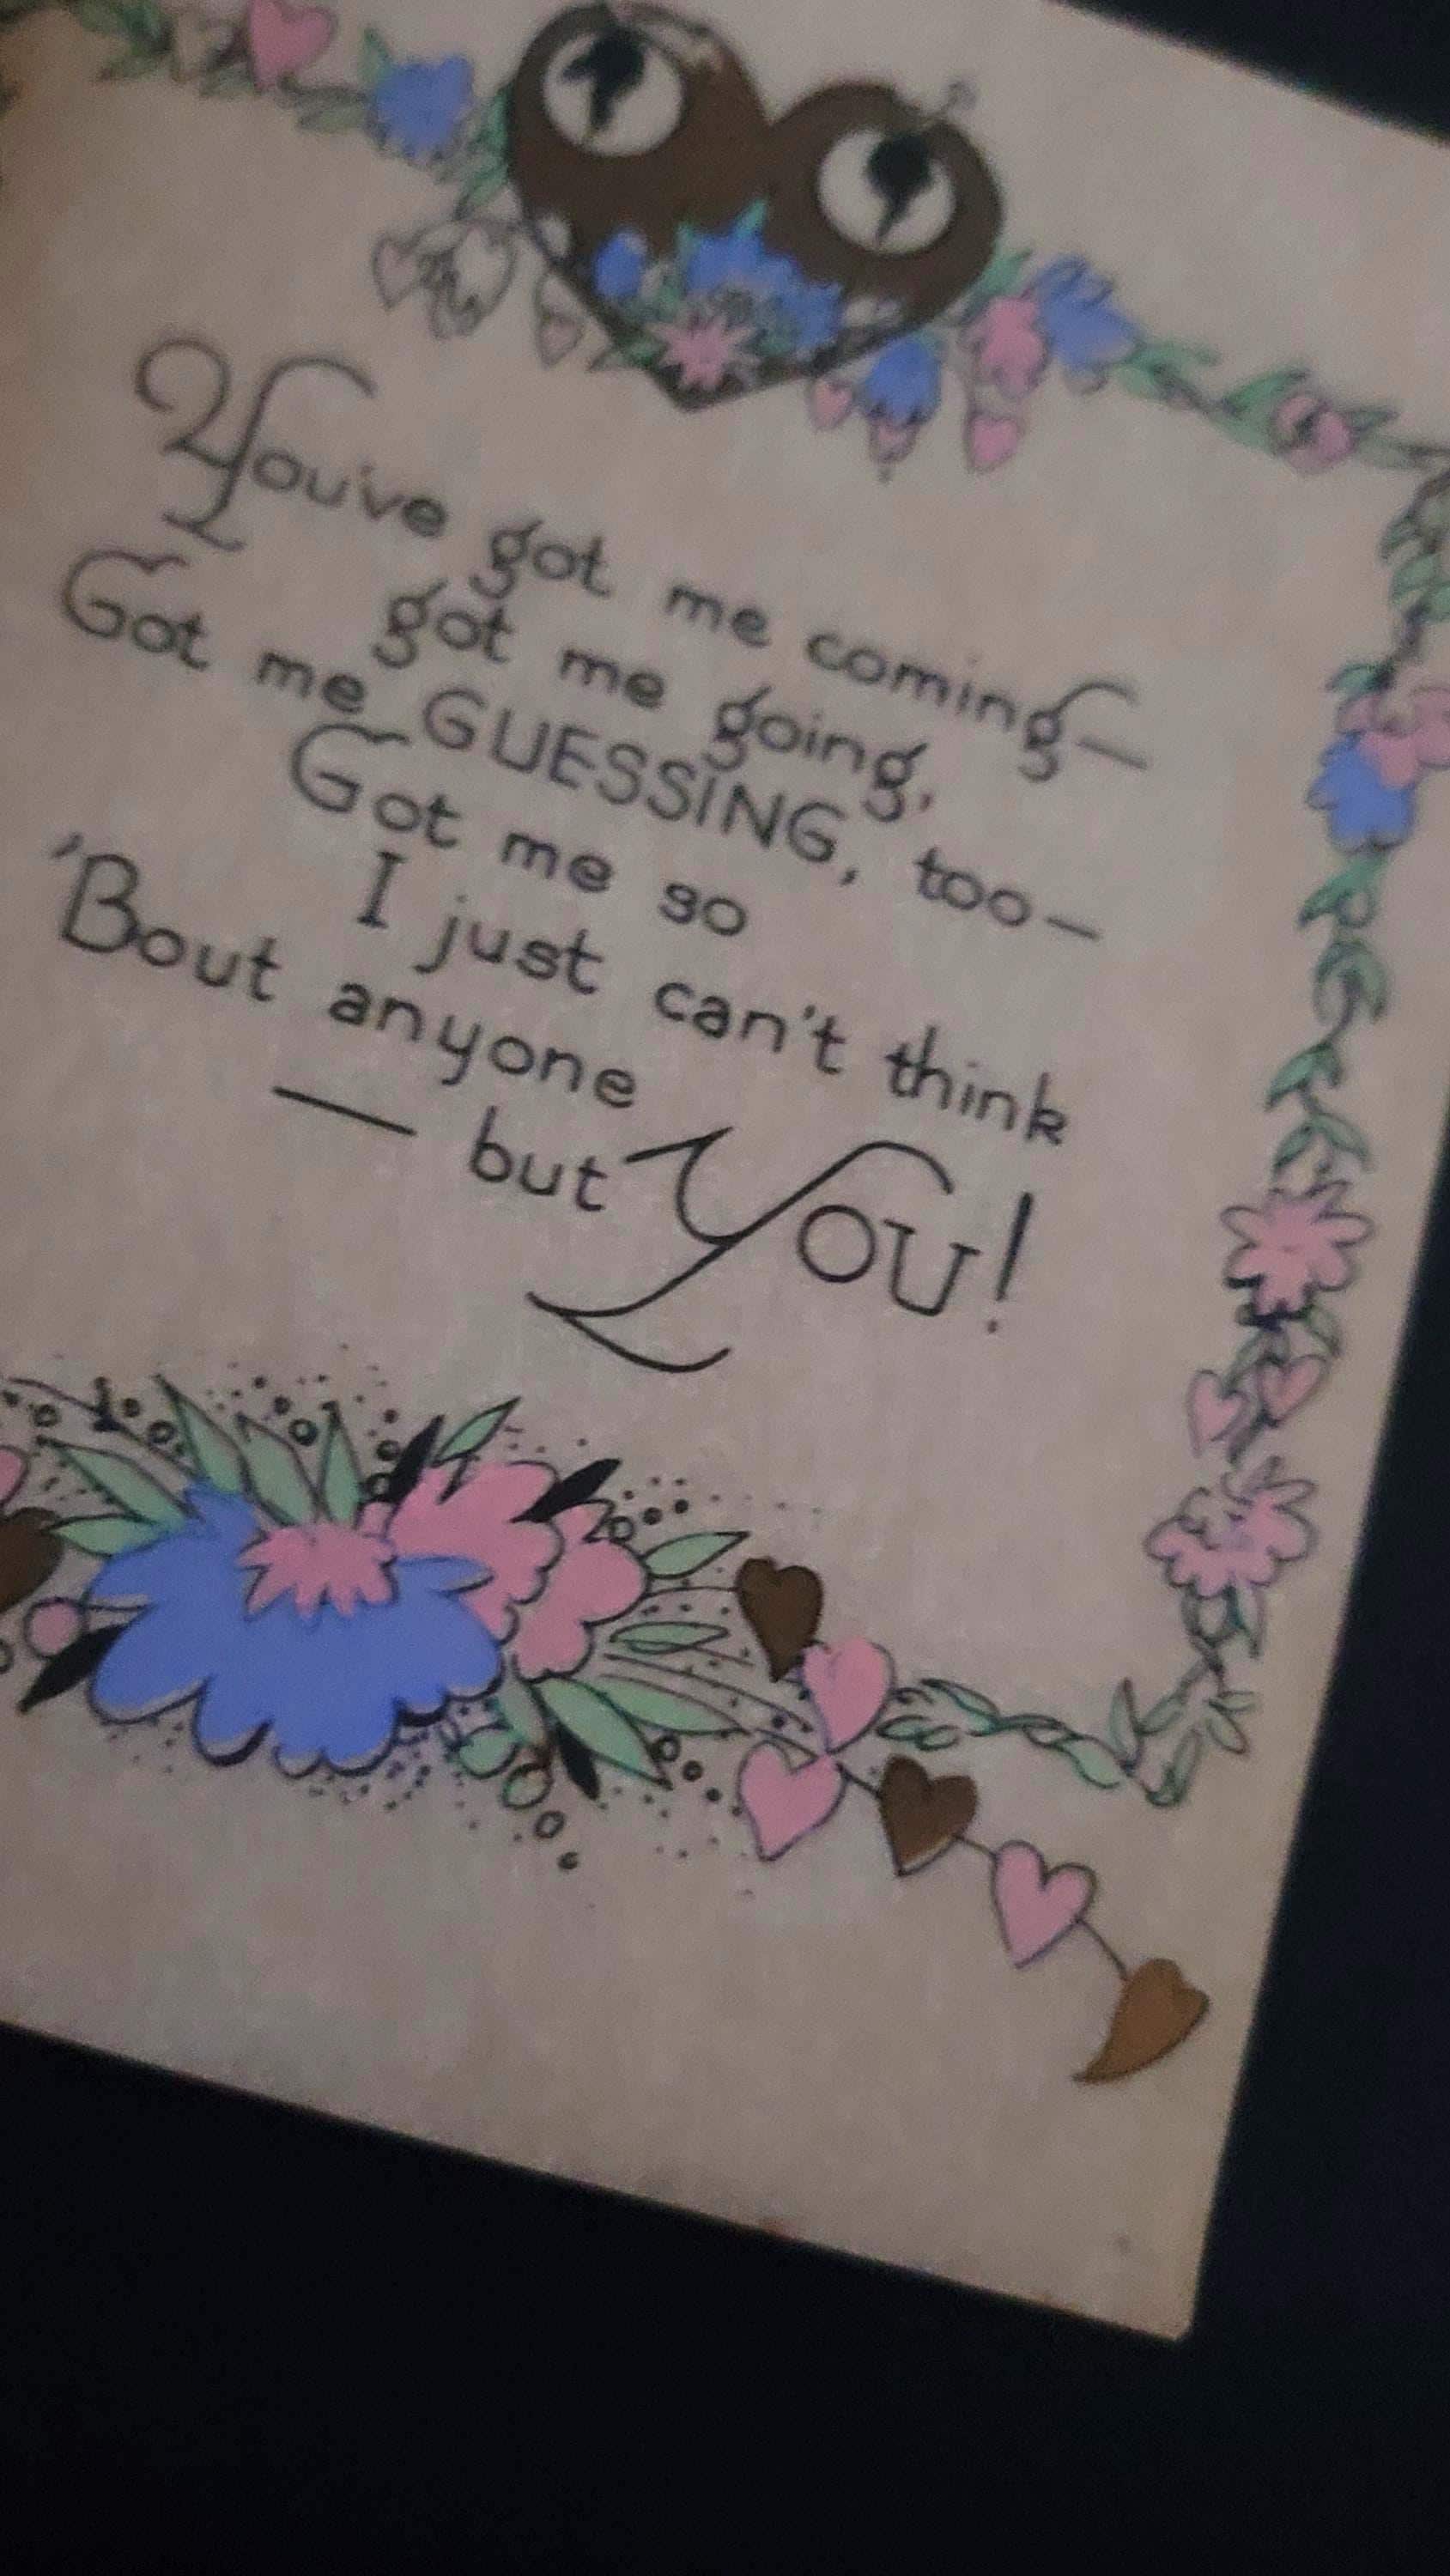 You've got me coming—
got me going,
Got me GUESSING, too—
Got me so
I just can't think
'Bout anyone
— but YOU!